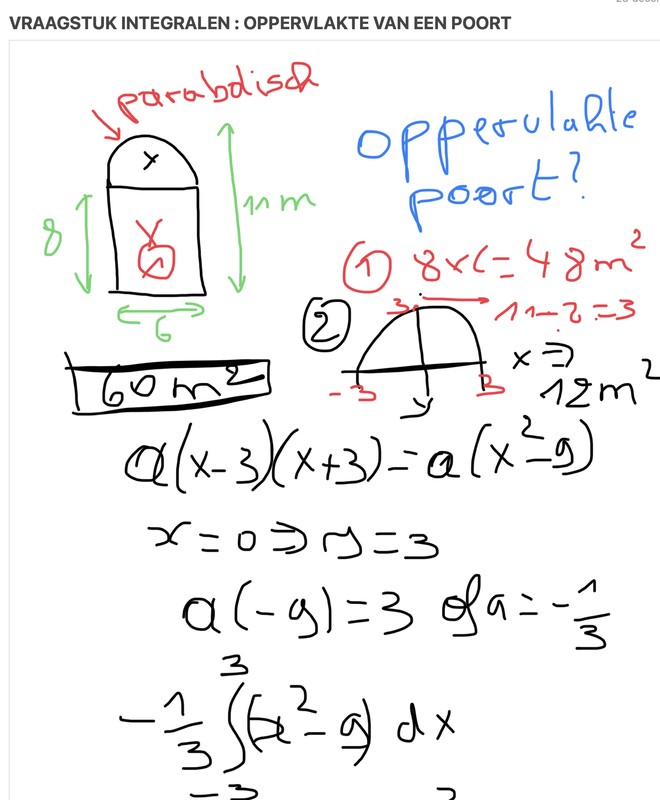 VRAAGSTUK INTEGRALEN : OPPERVLAKTE VAN EEN POORT
parabolisch
oppervlakte
poort?
x
11 m
8
1
6
① 8x6=48m²
② 3
11-8=3
-3 3
x ⇒
12m²
y
60 m²
a(x-3)(x+3)=a(x²-9)
x=0⇒y=3
a(-9)=3 of a=-1/3
-1/3 ∫(x²-9) dx
3
-3